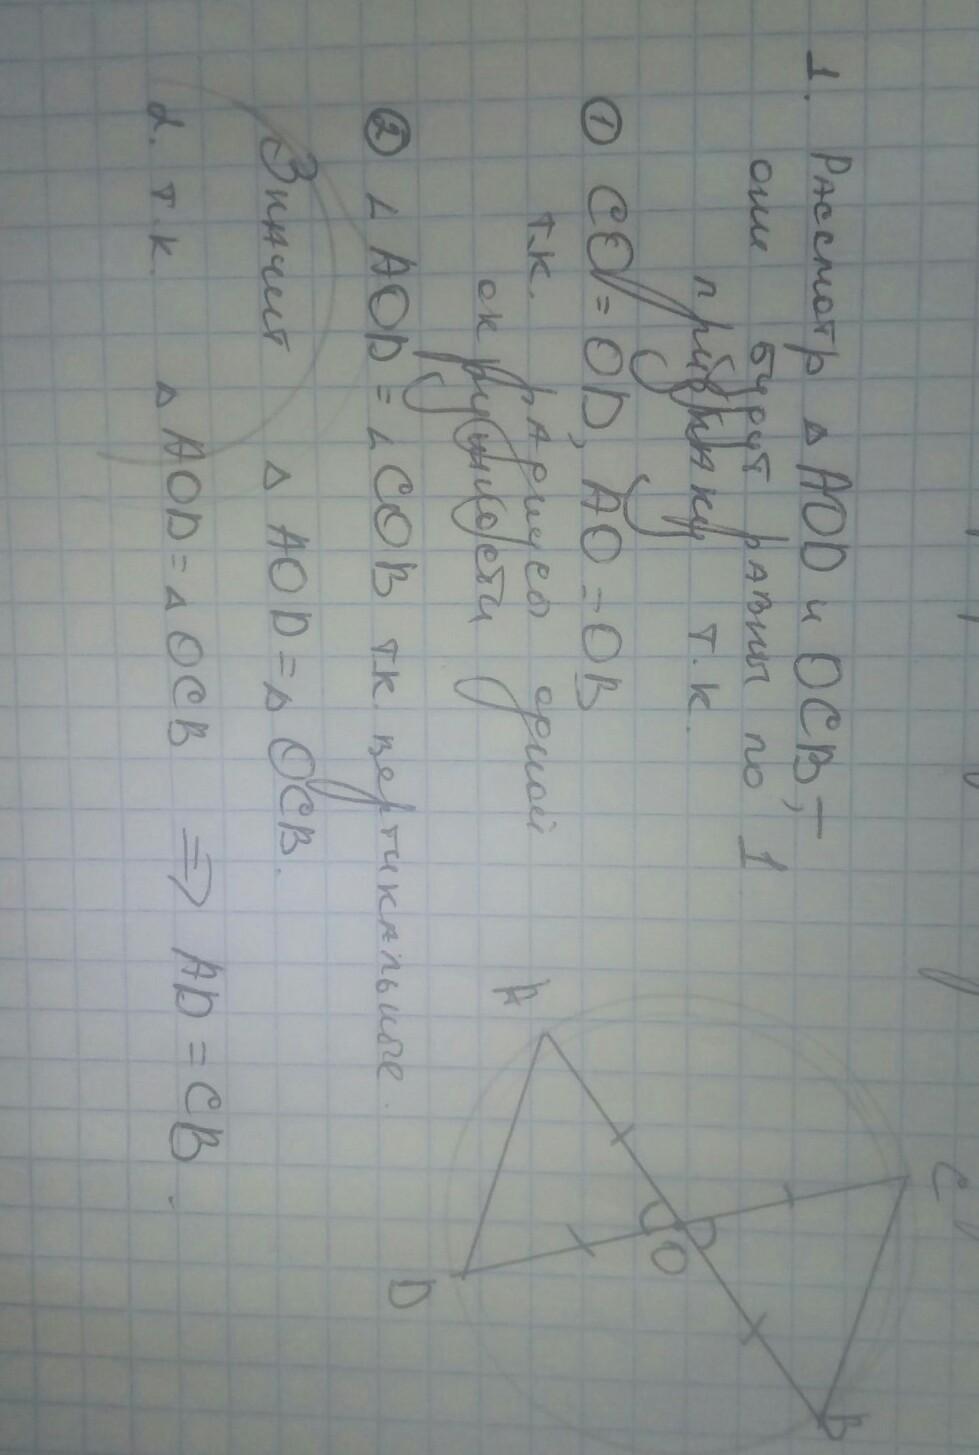 1. Рассмотр △ AOD и OCB, -
они будут равны по 1
признаку т.к.
① CO = OD, AO = OB
т.к. радиусы одной
окружности
② ∠ AOD = ∠ COB т.к. вертикальные.
Значит △ AOD = △ OCB.
2. т.к. △ AOD = △ OCB ⇒ AD = CB.
A
C
O
D
B